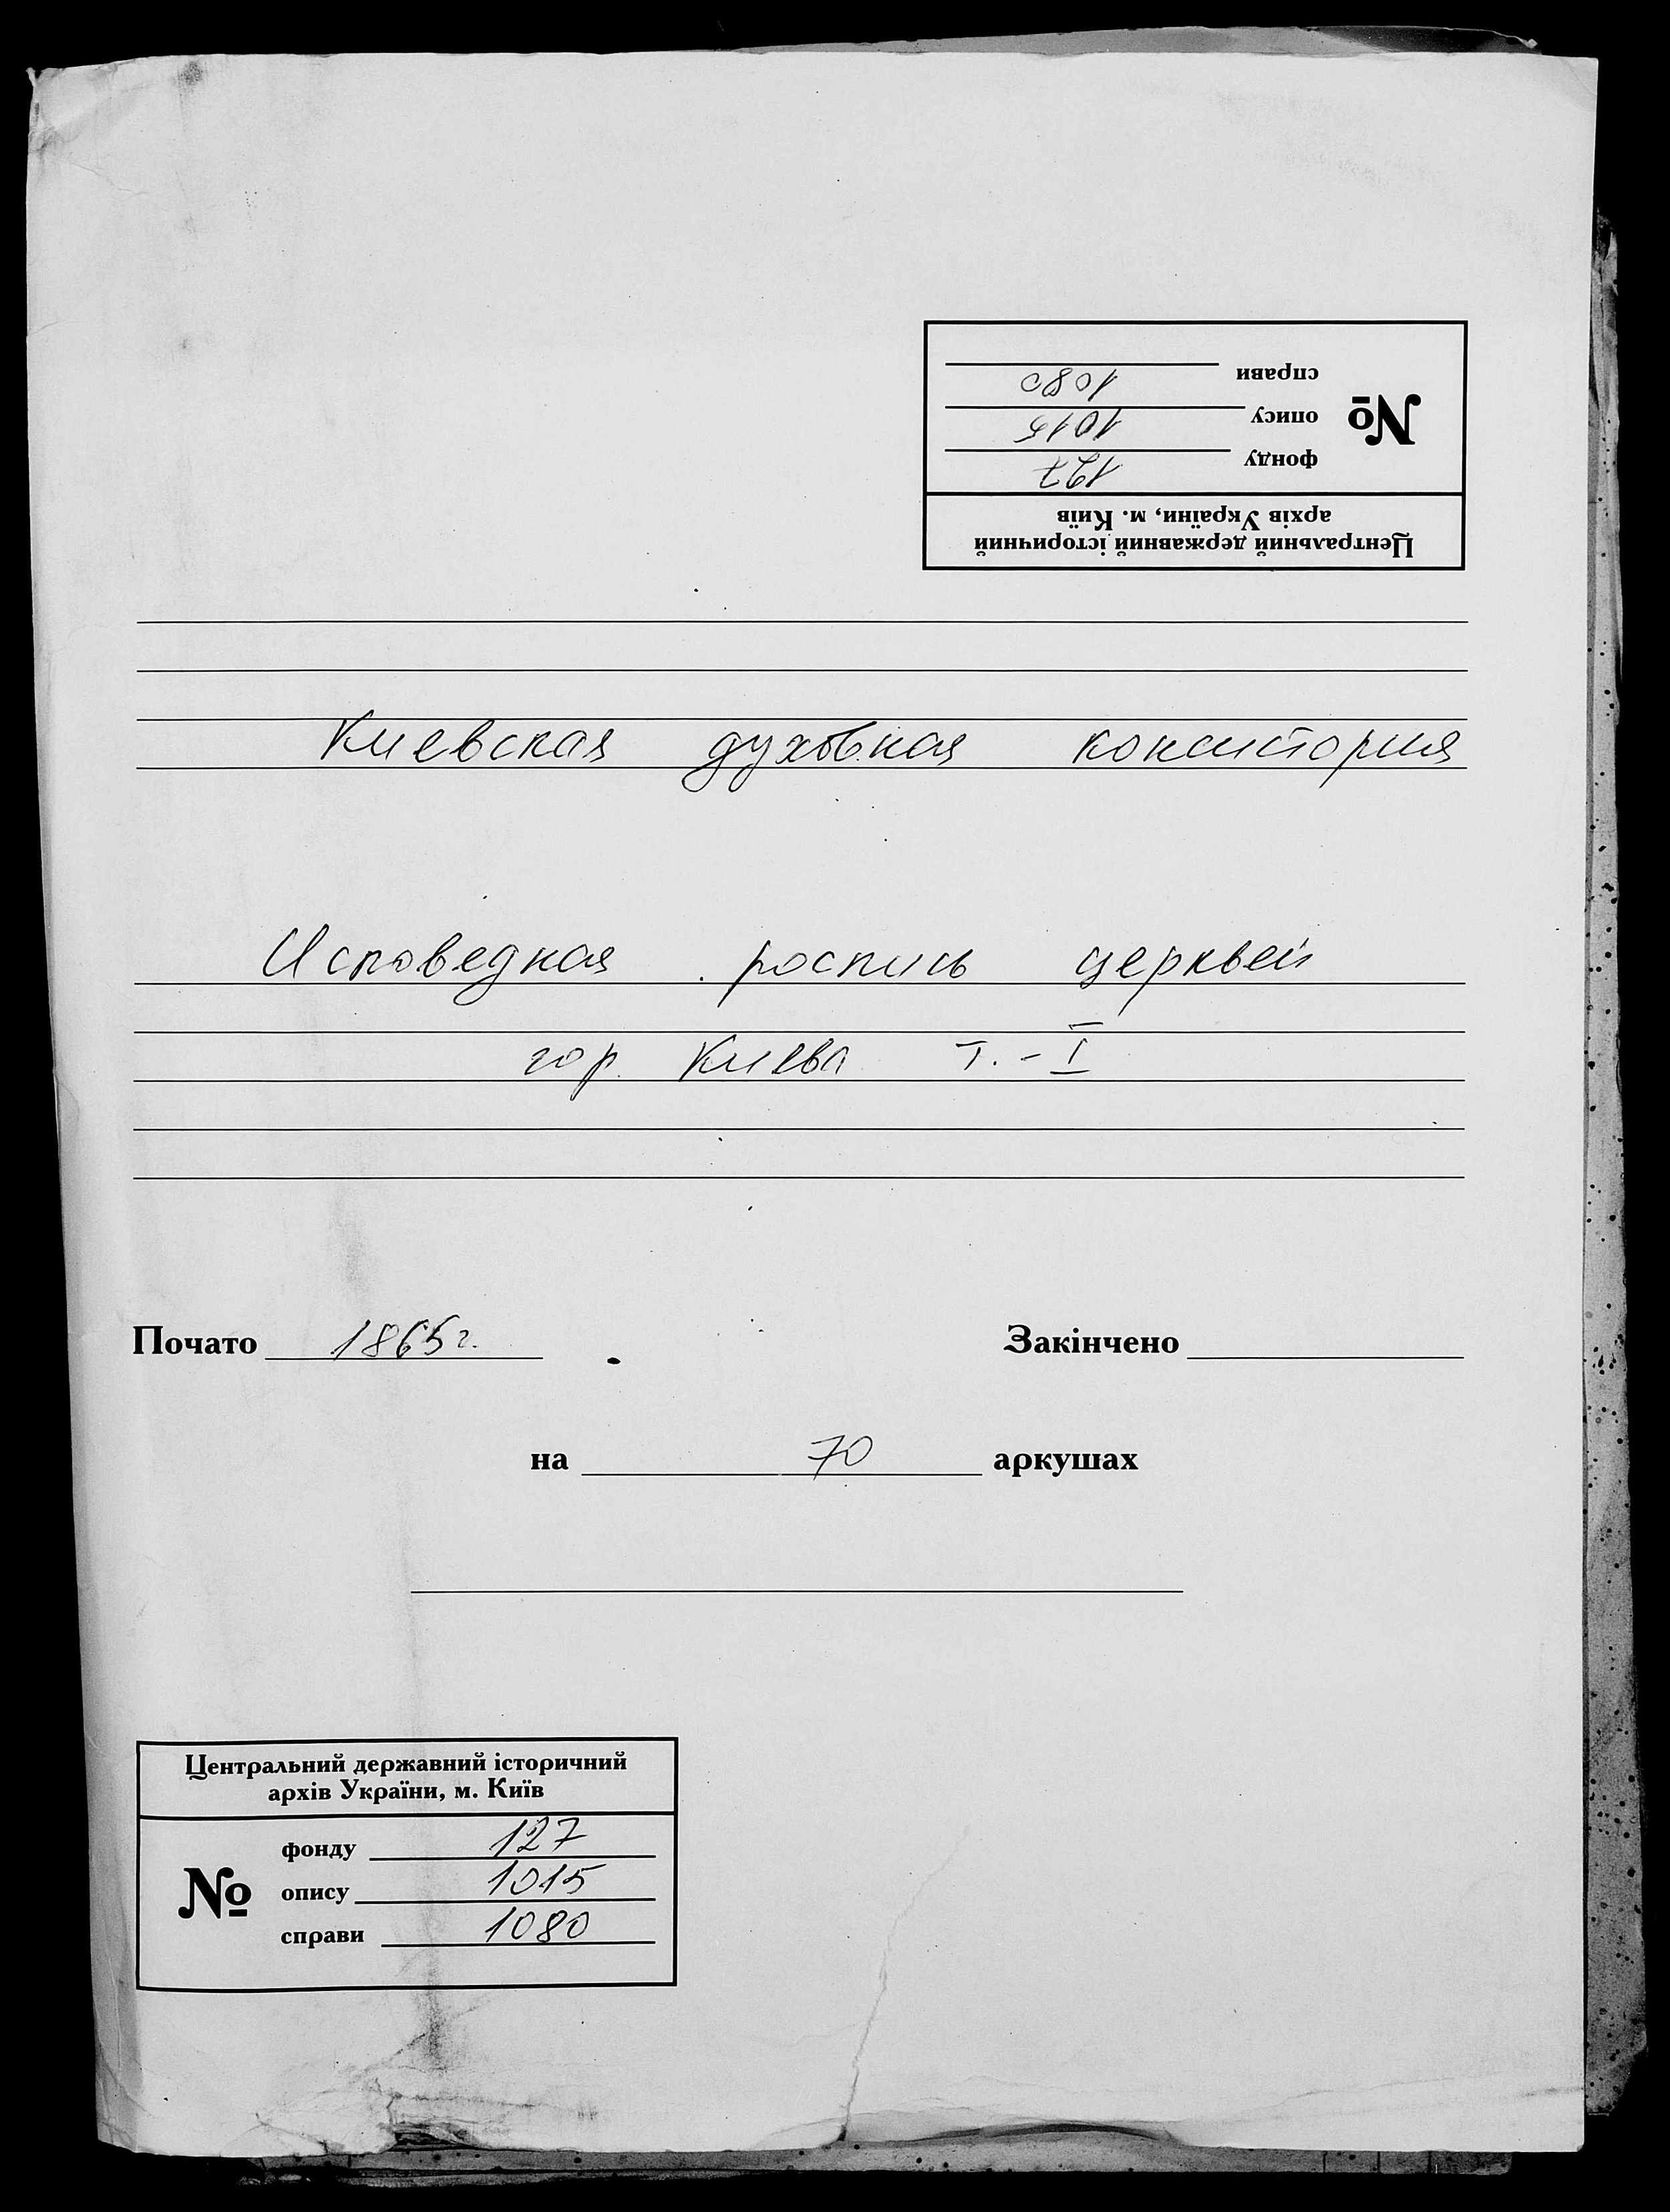 Центральний державний історичний
архів України, м. Київ
№
фонду 127
опису 1015
справи 1080
Киевская духовная консистория
Исповедная роспись церквей
гор. Киева т. - I
Почато 1865 г. Закінчено
на 70 аркушах
Центральний державний історичний
архів України, м. Київ
№
фонду 127
опису 1015
справи 1080